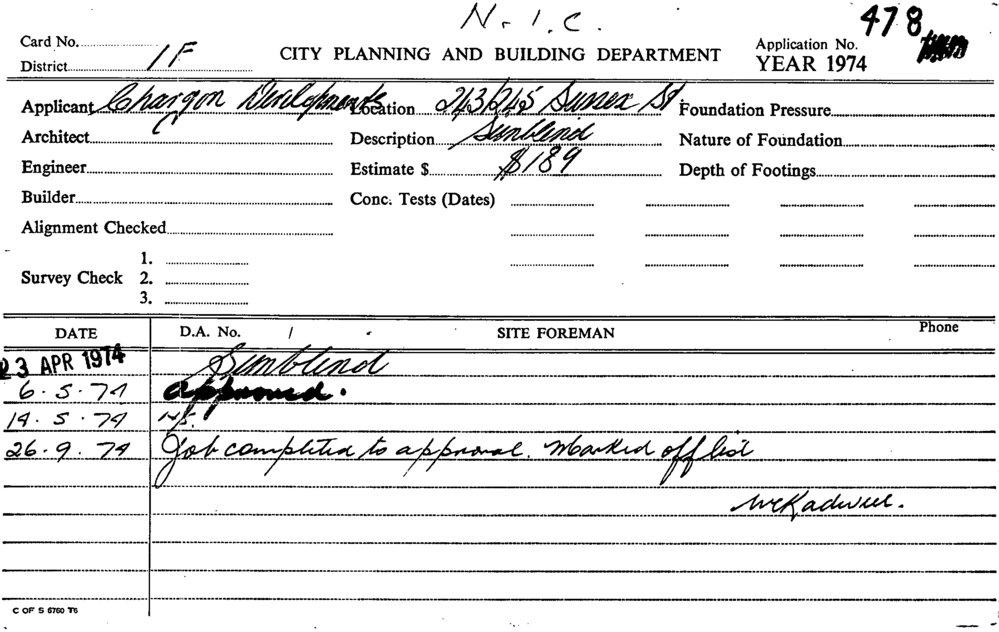 N.I.C.
478
Card No.
CITY PLANNING AND BUILDING DEPARTMENT
Application No.
District 1F
YEAR 1974
Applicant Chargon Developments Location 243/245 Sussex St. Foundation Pressure
Architect Description Sunblind Nature of Foundation
Engineer Estimate $ $189 Depth of Footings
Builder Conc. Tests (Dates)
Alignment Checked
1.
Survey Check 2.
3.
DATE D.A. No. / SITE FOREMAN Phone
23 APR 1974 Sunblind
6.5.74 approved.
14.5.74
26.9.74 Job completed to approval. Marked off list
C OF S 6760 T6